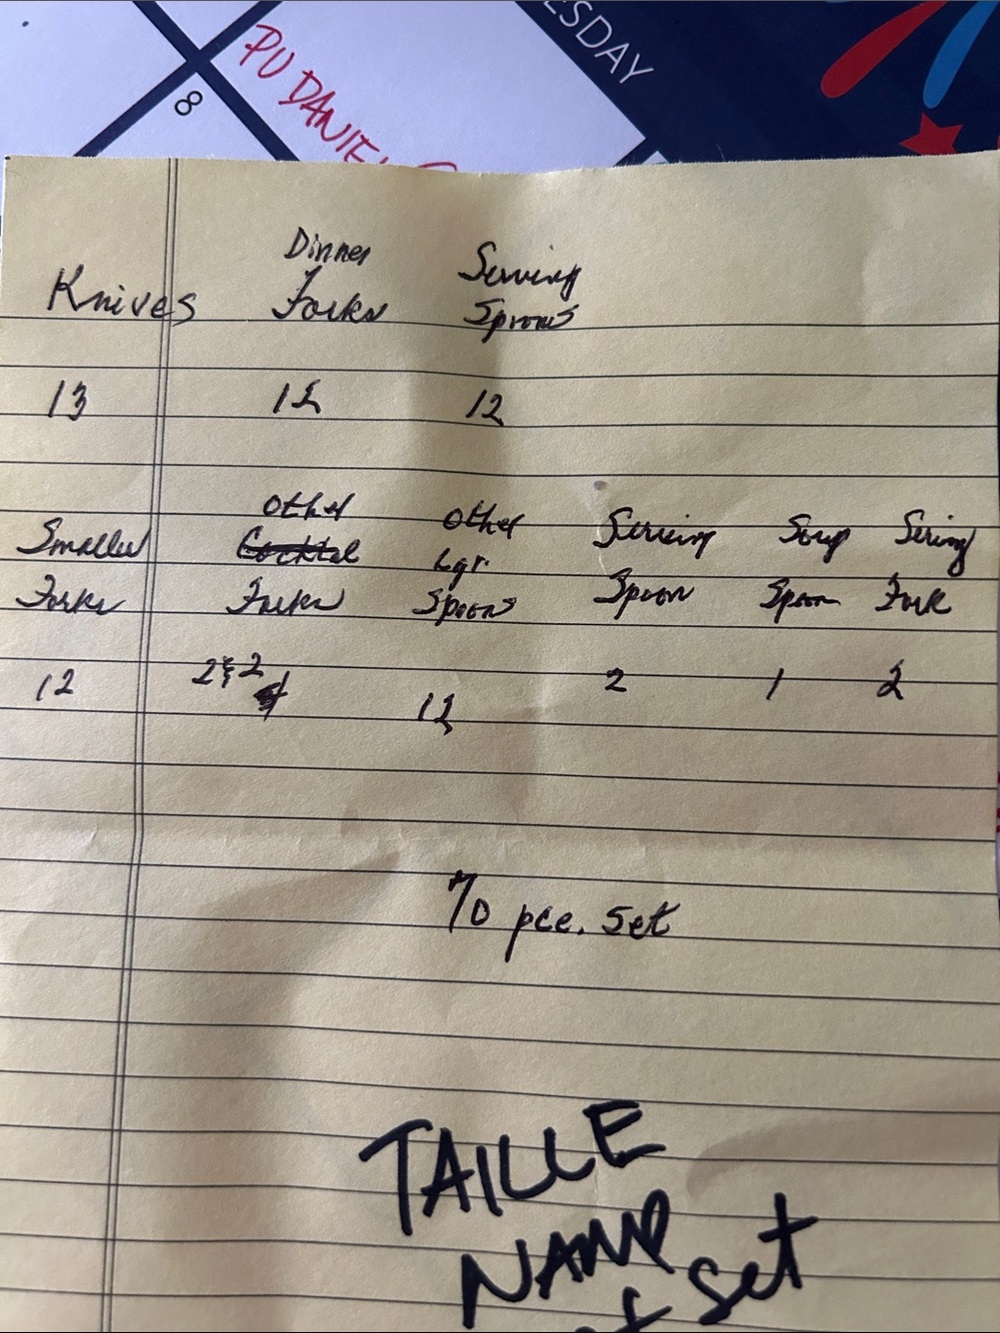 ESDAY
PU DANIEL
8
Dinner Serving
Knives Forks Spoons
13 12 12
Other Other Serving Soup Sering
Smaller Cocktal Lgr.
Forks Forks Spoons Spoon Spoon Fork
12 2 & 2 12 2 1 2
70 pce. Set
TAILLE
NAME
Set